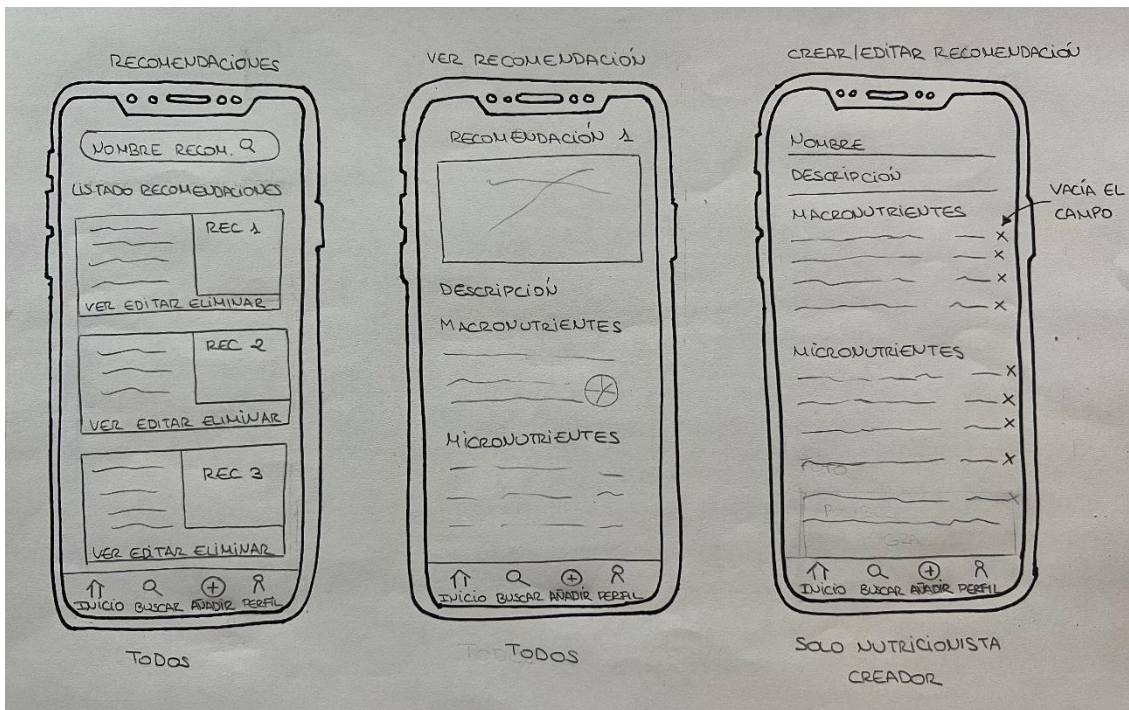 RECOMENDACIONES
NOMBRE RECOM.
LISTADO RECOMENDACIONES
REC 1
VER EDITAR ELIMINAR
REC 2
VER EDITAR ELIMINAR
REC 3
VER EDITAR ELIMINAR
INICIO BUSCAR AÑADIR PERFIL
TODOS
VER RECOMENDACIÓN
RECOMENDACIÓN 1
DESCRIPCIÓN
MACRONUTRIENTES
MICRONUTRIENTES
INICIO BUSCAR AÑADIR PERFIL
TODOS
CREAR/EDITAR RECOMENDACIÓN
NOMBRE
DESCRIPCIÓN
MACRONUTRIENTES
VACÍA EL
CAMPO
MICRONUTRIENTES
INICIO BUSCAR AÑADIR PERFIL
SOLO NUTRICIONISTA
CREADOR